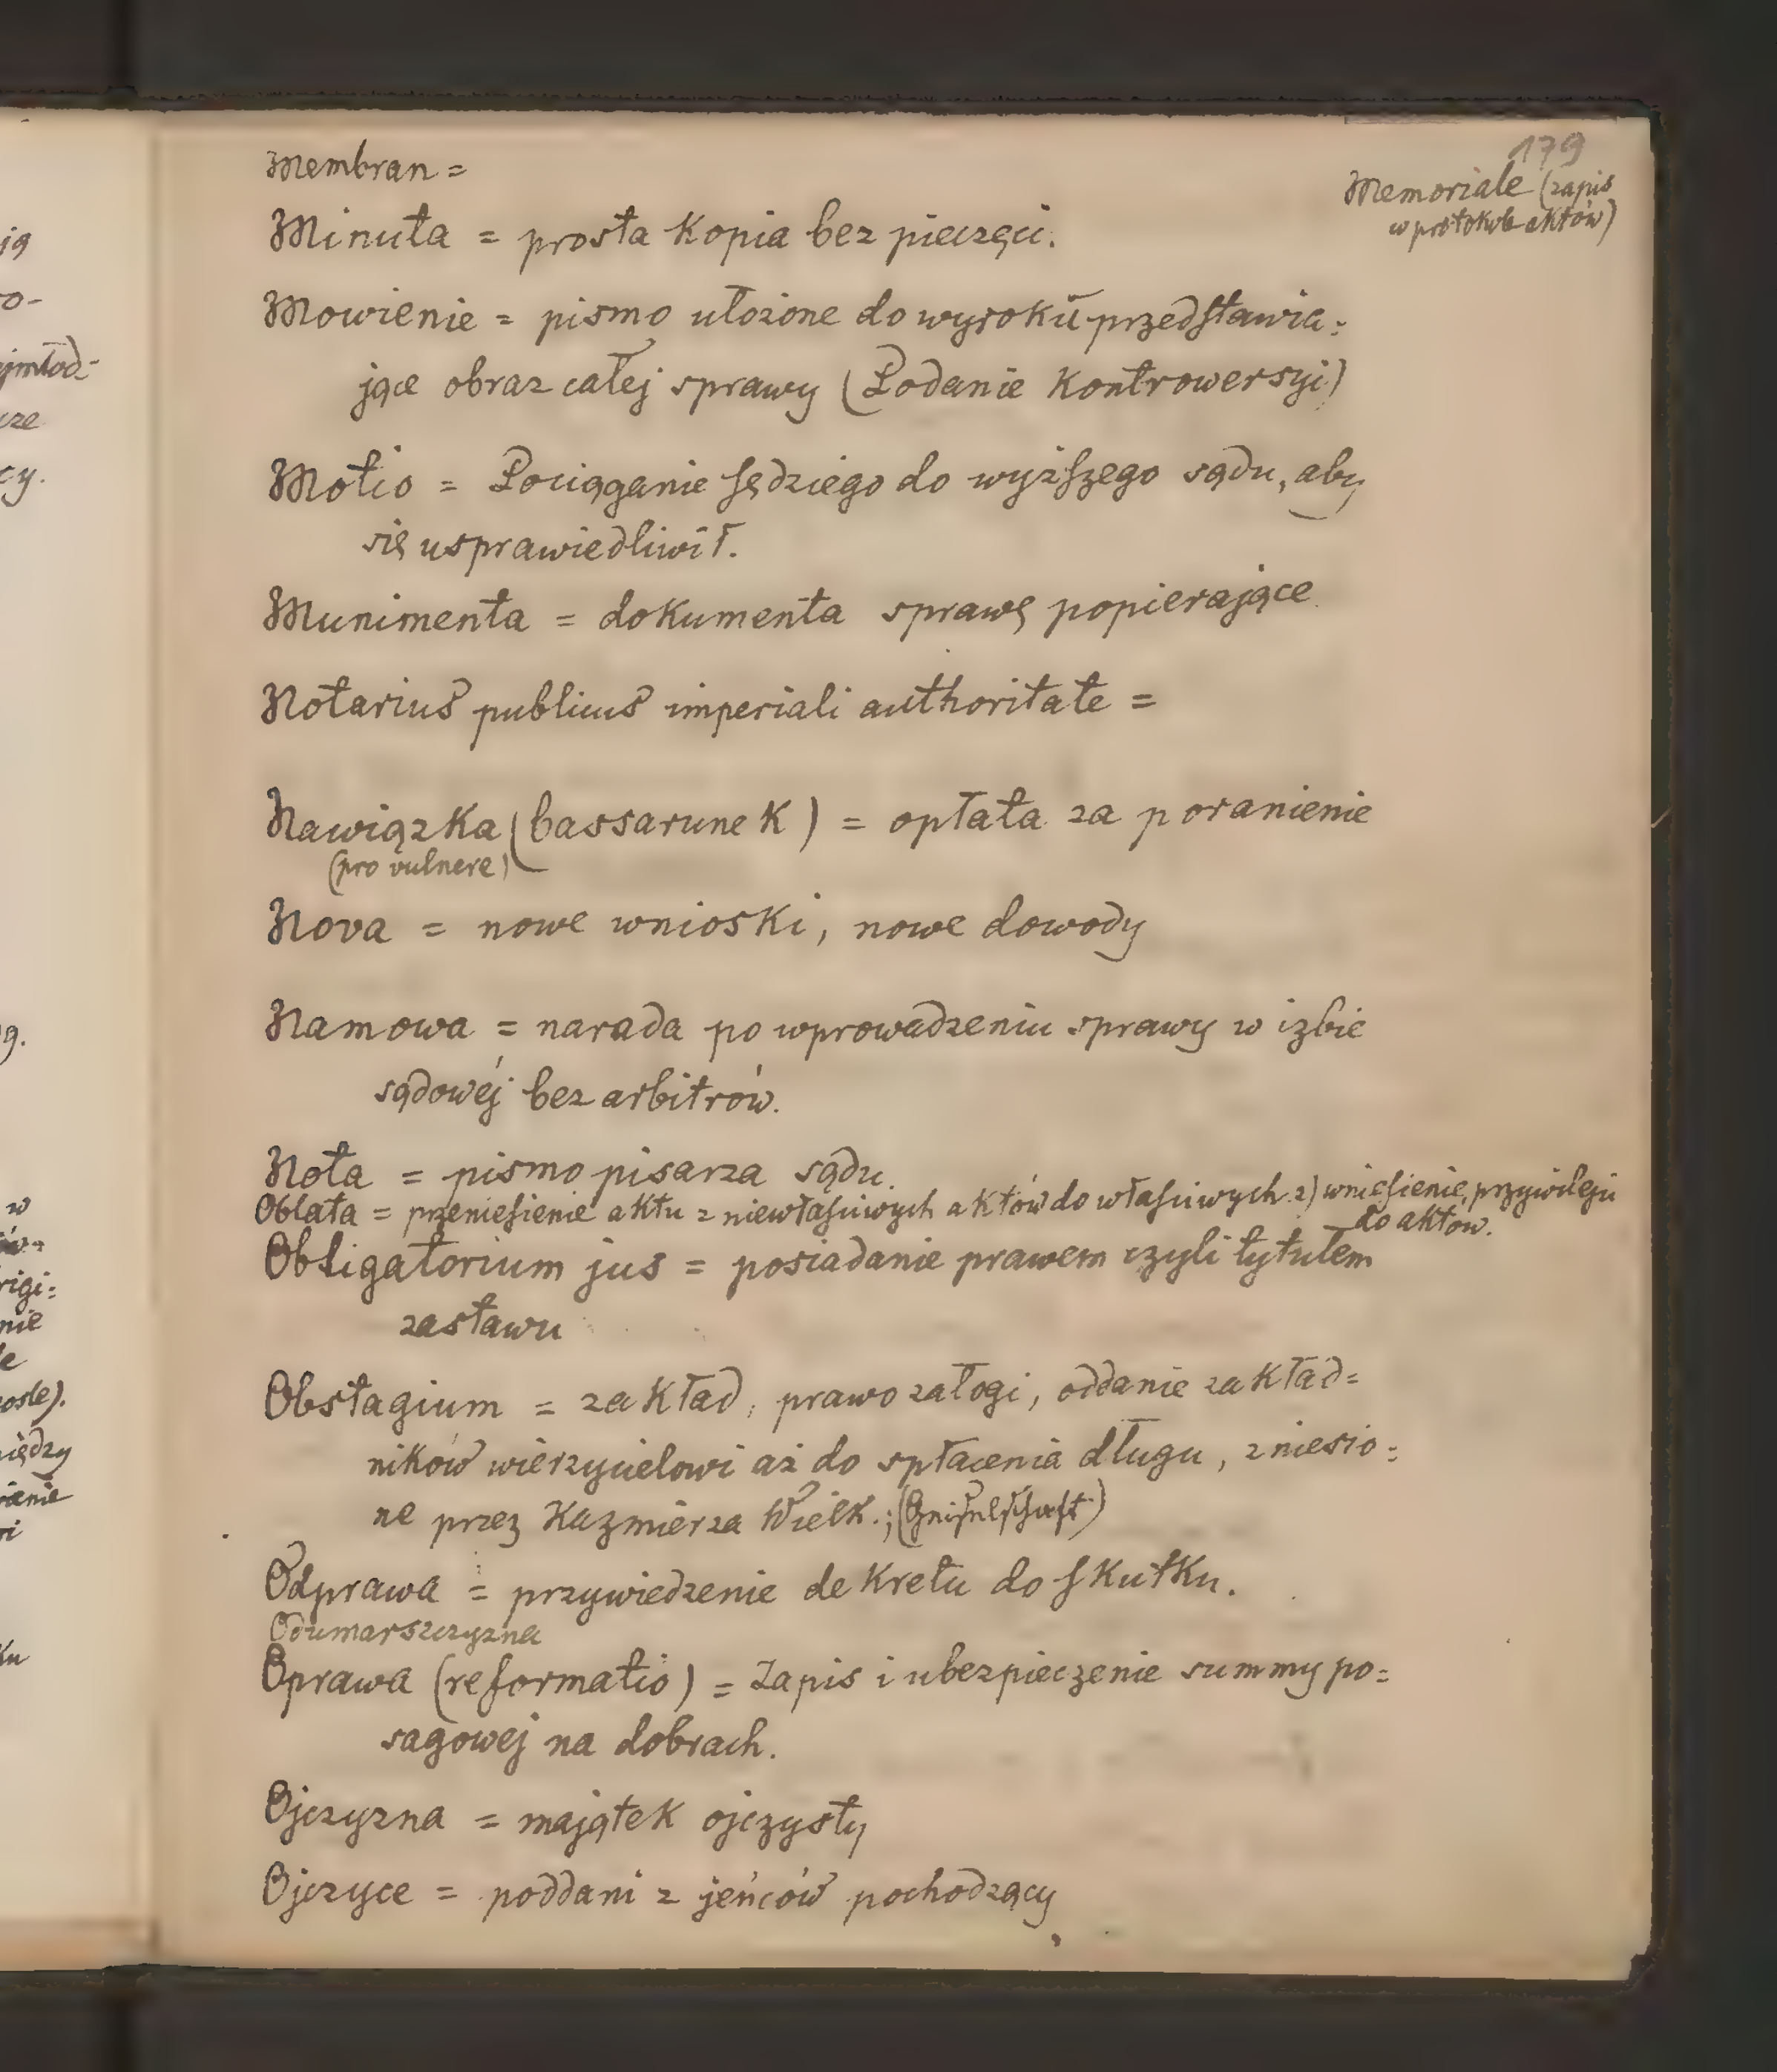 179
Membran =
Memoriale (zapis
w protokole aktów)
Minuta = prosta kopia bez pieczęci.
Mowienie = pismo ułożone do wyroku przedstawia=
jące obraz całej sprawy (Podanie Kontrowersyi)
Motio = Pociąganie sędziego do wyższego sądu, aby
się usprawiedliwił.
Munimenta = dokumenta sprawę popierające
Notarius publicus imperiali authoritate =
Nawiązka (bassarunek) = opłata za poranienie
(pro vulnere)
Nova = nowe wnioski, nowe dowody
Namowa = narada po wprowadzeniu sprawy w izbie
sądowéj bez arbitrów.
Nota = pismo pisarza sądu.
Oblata = przeniesienie aktu z niewłaściwych aktów do właściwych. 2) wniesienie przywileju
do aktów.
Obligatorium jus = posiadanie prawem czyli tytułem
zastawu
Obstagium = zakład, prawo załogi, oddanie zakład=
ników wierzycielowi aż do spłacenia długu, zniesio=
ne przez Kazmierza Wielk.;
Odprawa = przywiedzenie dekretu do skutku.
Odumarszczyzna
Oprawa (reformatio) = Zapis i ubezpieczenie summy po=
sagowej na dobrach.
Ojczyzna = majątek ojczysty
Ojczyce = poddani z jeńców pochodzący
ją
o-
jmłod-
cze
cy.
g.
w
rigi=
nie
le
osle).
iędzy
ianie
ku